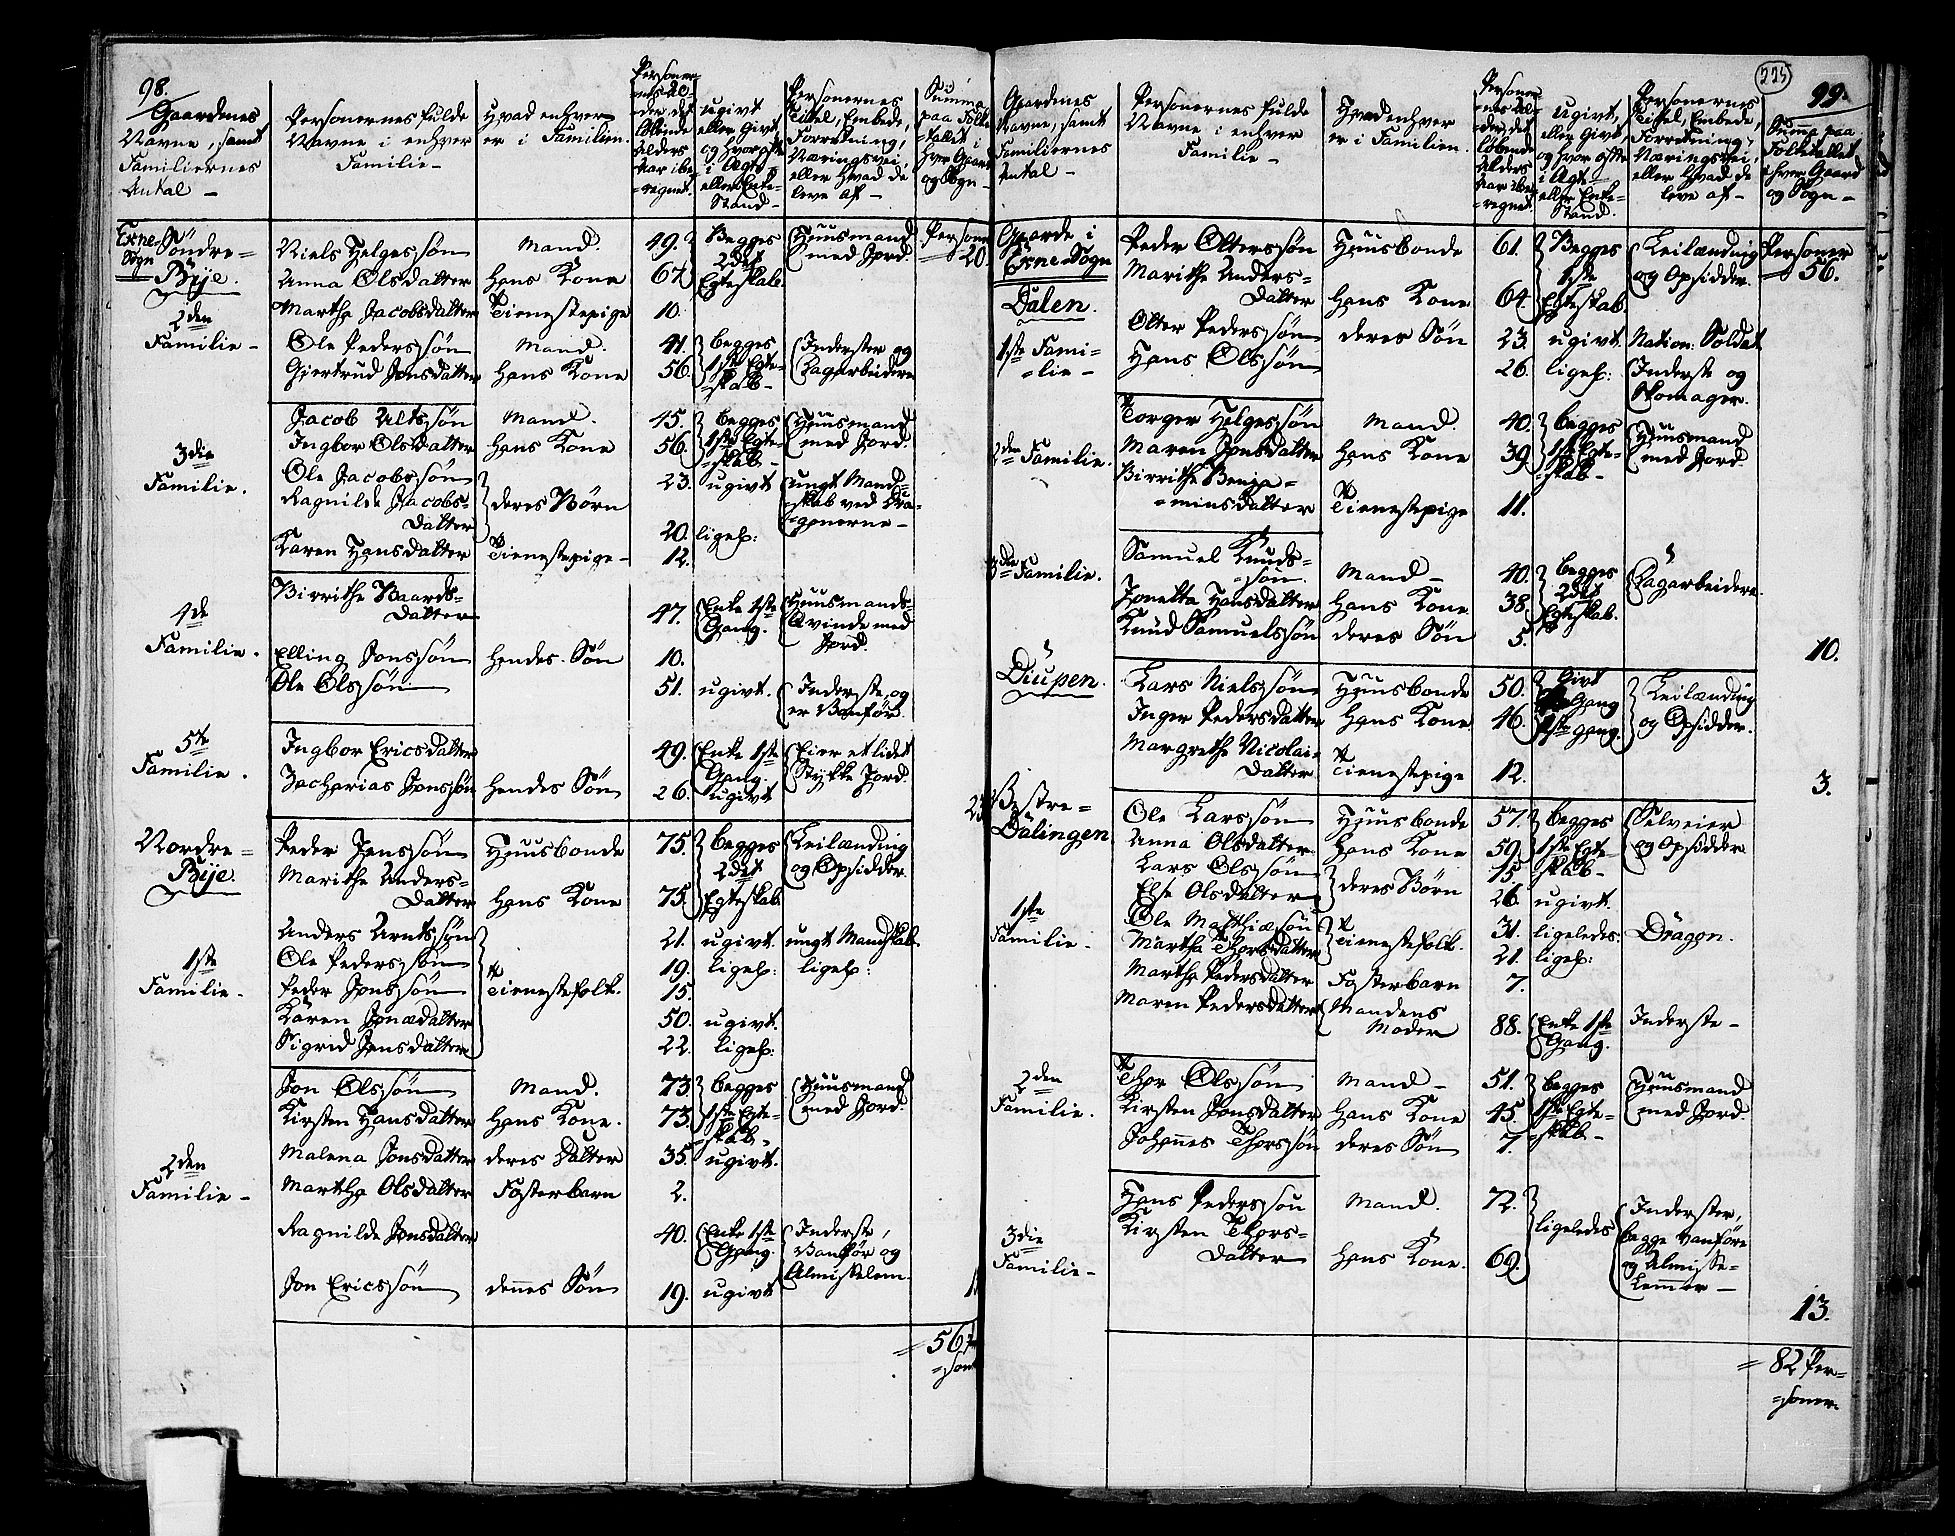 98.
Gaardenes Navne, samt Familiernes Antal –
Personernes fulde Navne i enhver Familie –
Hvad enhver er i Familien.
Personernes Alder, det løbende Alders Aar iberegnet.
ugivt eller givt, og hvor ofte i Ægte- eller Enke-Stand –
Personernes Titel, Embede, Forretning, Næringsvei, eller hvad de leve af –
Summa paa Folketallet i hver Gaard og Sogn –
Exne Sogn
Söndre=Bÿe.
Niels Helgessøn Mand. 49. Begges 2det Egteskab Huusmand med Jord. Personer 20.
Anna Olsdatter hans Kone 67
Martha Jacobsdatter Tienestepige 10.
2den Familie –
Ole Pederssøn Mand. 41. begges 1ste Egteskab – Inderster og Dagarbeidere
Giertrud Jonsdatter hans Kone 56.
3die Familie.
Jacob Altssøn Mand. 45. begges 1ste Egteskab – Huusmand med Jord.
Ingbor Olsdatter hans Kone 56.
Ole Jacobssøn deres Börn 23. ugivt ungt Mandskab ved Dragonerne –
Ragnilde Jacobsdatter 20. liges:
Karen Hansdatter Tienestepige – 12.
4de Familie.
Birrithe Baardsdatter 47. Enke 1ste Gang. Huusmandsqvinde med Jord.
Elling Jonssøn hendes Sön 10.
Ole Olssøn 51. ugivt. Inderste, og er Vanför.
5te Familie.
Ingbor Ericsdatter 49. Enke 1ste Gang. Eier et lidet Stykke Jord.
Zacharias Jonssøn hendes Sön 26. ugivt
23
Nordre=Bÿe.
Peder Jenssøn Huusbonde 75. begges 2det Egteskab Leilænding og Opsidder.
Marithe Andersdatter hans Kone 75.
1ste Familie –
Anders Arntssøn Tienestefolk. 21. ugivt. ungt Mandskab.
Ole Pederssøn 19. liges: liges:
Peder Jonssøn 15.
Karen Jonædatter 50. ugivt.
Sigrid Jensdatter 22. liges:
2den Familie –
Jon Olssøn Mand. 73. begges 1ste Egteskab – Huusmand med Jord.
Kirsten Hansdatter hans Kone. 73.
Malena Jonsdatter deres Datter 35. ugivt.
Martha Olsdatter Fosterbarn 2.
Ragnilde Jonsdatter 40. Enke 1ste Gang. Inderste, Vanför og Almisselem.
Jon Ericssøn dennes Sön 19. ugivt
= 56
225
99.
Gaardenes Navne, samt Familiernes Antal –
Personernes fulde Navne i enhver Familie –
Hvad enhver er i Familien.
Personernes Alder, det løbende Alders Aar iberegnet.
ugivt, eller givt, og hvor ofte i Ægte- eller Enke-Stand.
Personernes Titel, Embede, Forretning, Næringsvei, eller hvad de leve af –
Suma paa Folketallet i hver Gaard og Sogn –
Gaarde i Exne Sogn
Dalen.
1ste Familie –
Peder Olterssøn Huusbonde 61. Begges 1ste Egteskab. Leilænding og Opsidder. Personer 56.
Marithe Andersdatter hans Kone 64
Olter Pederssøn deres Sön 23. ugivt. Nation: Soldat
Hans Olssøn 26. liges: Inderste og Skomager.
2den Familie.
Torger Helgessøn Mand. 40. begges 1ste Egteskab – Huusmand med Jord
Maren Jonsdatter hans Kone 39
Birrithe Benjaminsdatter Tienestepige 11.
3die Familie.
Samuel Knudssøn. Mand – 40. begges 2det Egteskab. Dagarbeidere.
Jonetta Hansdatter hans Kone 38.
Knud Samuelssøn deres Sön 5.
10.
Diupen.
Lars Nielssøn Huusbonde 50. Givt Gang Leilænding og Opsidder.
Inger Pedersdatter hans Kone 46. 1ste gang.
Margrethe Nicolaidatter Tienestepige 12.
3.
Vestre=Dalingen
1ste Familie.
Ole Larssøn Huusbonde 57. begges 1ste Egteskab – Selveier og Opsidder
Anna Olsdatter hans Kone 59.
Lars Olssøn deres Börn 15
Else Olsdatter 26. ugivt.
Ole Matthiæsøn Tienestefolk. 31. ligeledes. Dragon.
Martha Thorsdatter 21. ligef:
Martha Pedersdatter Fosterbarn 7.
Maren Pedersdatter Mandens Moder 88. Enke 1ste Gang. Inderste –
2den Familie.
Thor Olssøn Mand – 51. begges 1ste Egteskab – Huusmand med Jord
Kirsten Jonsdatter hans Kone 45.
Johannes Thorssøn deres Sön 7.
3die Familie –
Hans Pederssøn Mand. 72. ligeledes Inderster, begge vanföre og Almisse-Lemmer –
Kirsten Thorsdatter hans Kone. 69.
13.
= 82 Personer.